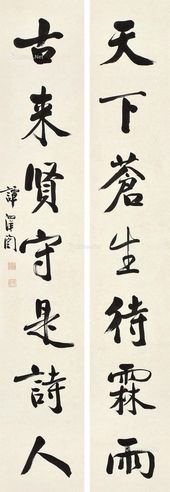 天下蒼生待霖雨
古来贤守是詩人
譚澤闓